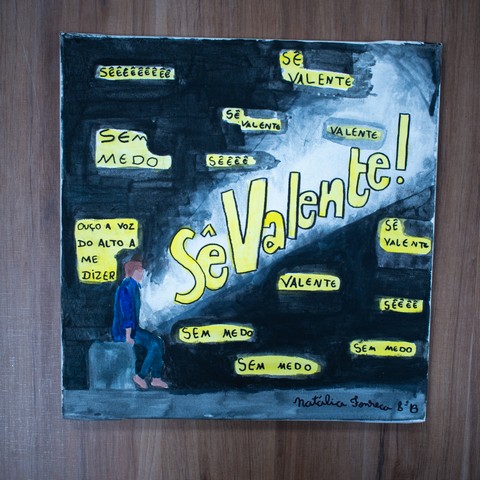 SÊÊÊÊÊÊÊÊÊ
SÊ
VALENTE
SÊ
VALENTE
VALENTE
SEM
MEDO
SÊÊÊÊ
SêValente!
OUÇO A VOZ
DO ALTO A
ME
DIZER
SÊ
VALENTE
VALENTE
SÊÊÊÊ
SEM MEDO
SEM MEDO
SEM MEDO
Natalia Fonseca 8ª B